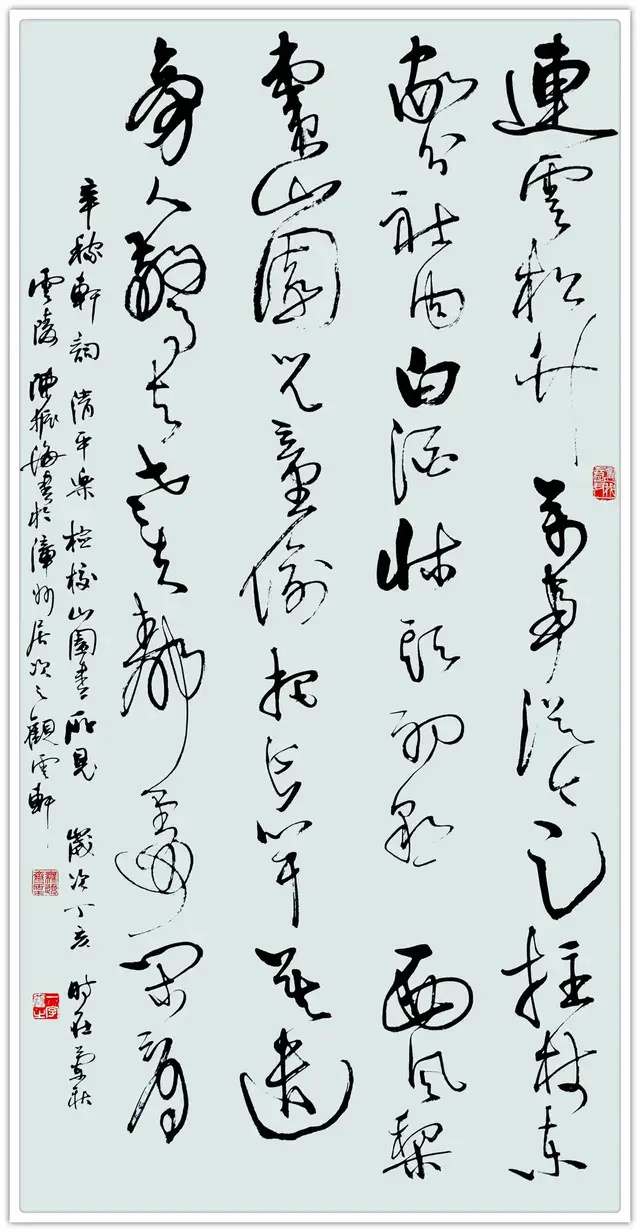 連雲松竹萬事從今足拄杖東
家分社肉白酒牀頭初熟西風梨
棗山園兒童偷把長竿莫遣
旁人驚去老夫靜處閒看
辛稼軒詞清平樂檢校山園書所見歲次丁亥時在蘭秋
雲陵陳振海書於漳州居次之觀雲軒